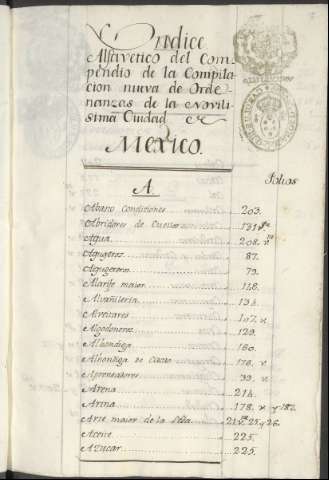 Yndice
Alfavetico del Com
pendio de la Compila
cion nueva de Orde
nanzas de la Novili
sima Ciudad de
Mexico.
Folios
A
Abasto Condiciones 203.
Abridores de Cuellos 131
Agua 208. v
87.
Agugeteros 79.
Alarife maior 148.
Alvañileria 134.
107. v
Algodoneros 129.
Alhondiga 160.
Alhondiga de Cacao 176. v
Aprensadores 39. v
Arena 214.
Arina 178. v y 182.
Arte maior de la Seda 21 v 25. y 26.
Aceite 225.
Azucar 225.